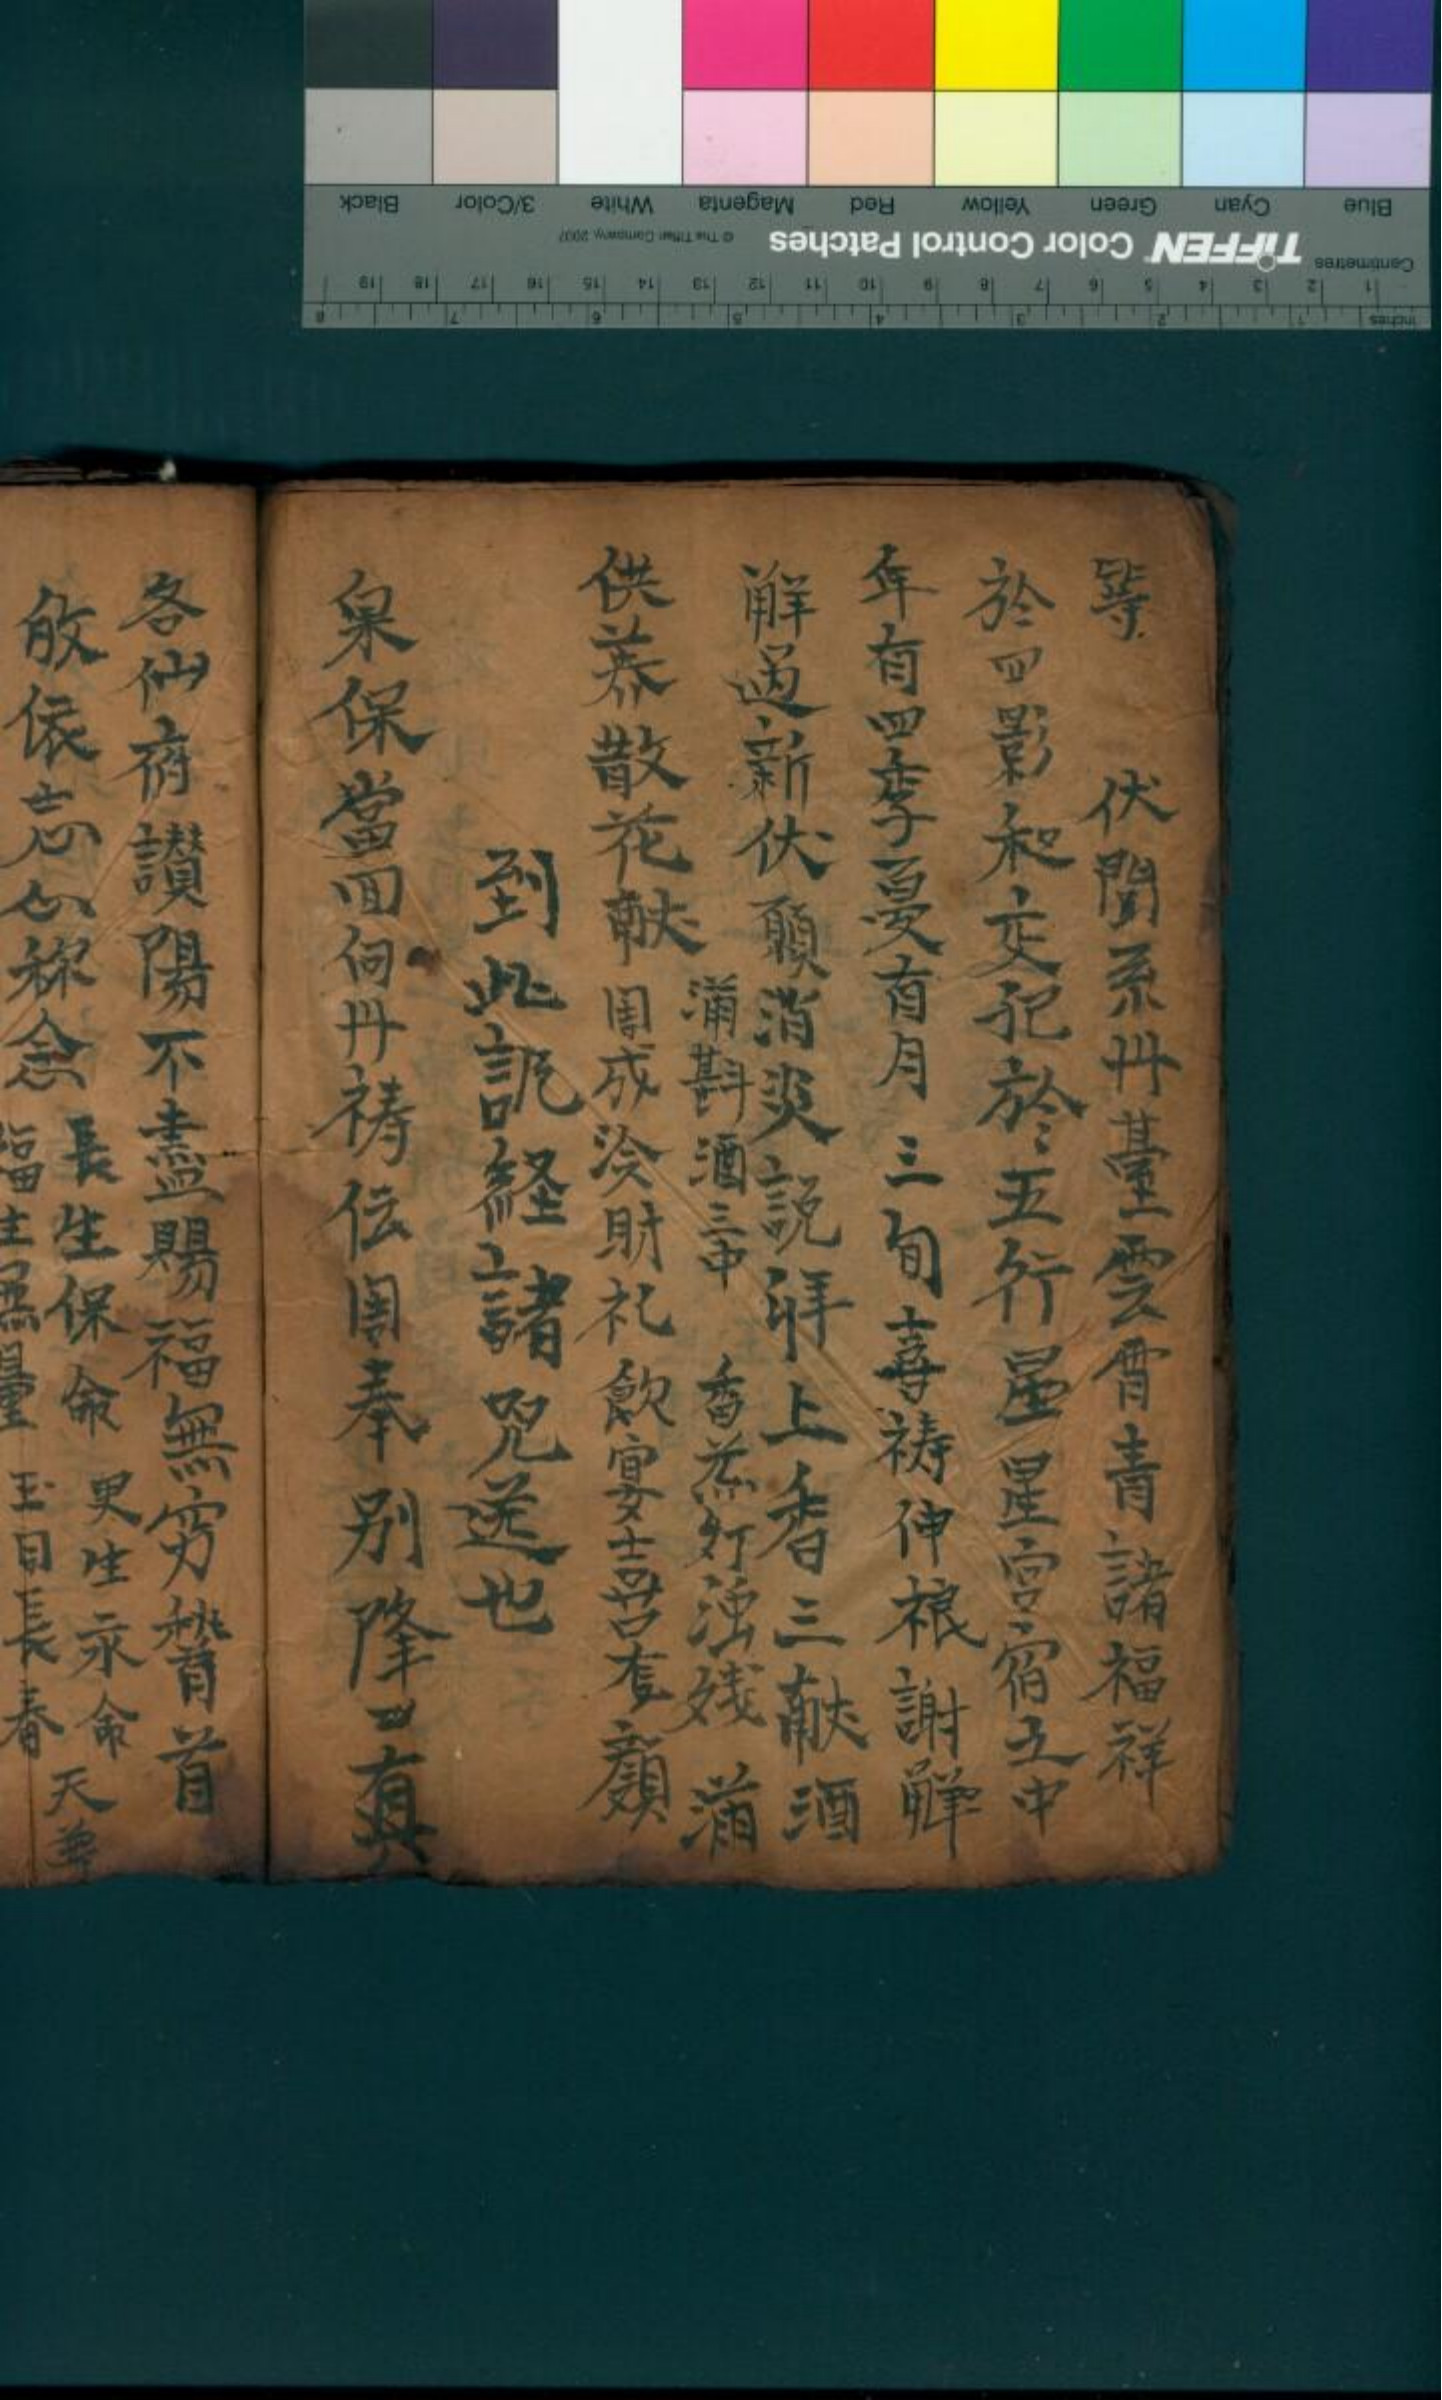 Blue Cyan Green Yellow Red Magenta White 3/Color Black
TIFFEN Color Control Patches © The Tiffen Company, 2007
Centimetres 1 2 3 4 5 6 7 8 9 10 11 12 13 14 15 16 17 18 19
Inches 1 2 3 4 5 6 7 8
䓁 伏聞系丹臺雲霄青諸福祥
於四影和交犯於五行星星宫宿五中
年有四季夏有月三旬喜禱伸禳謝觧
觧過新伏願消災説祥上香三献酒
满斟酒三中 香茶灯浊残 满
供养散花献 周成冷財礼飲宴喜顔
到此説経上諸咒送也
泉保當面何丹禱伝周奉别降真
各仙府讃陽不盡賜福無穷稽首
皈依志心称念 長生保命 男生永命 天尊
福生無量 玉日長春